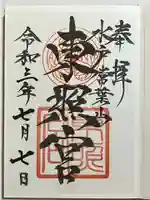 奉拝
水戸宮葉山
東照宮
令和三年七月七日